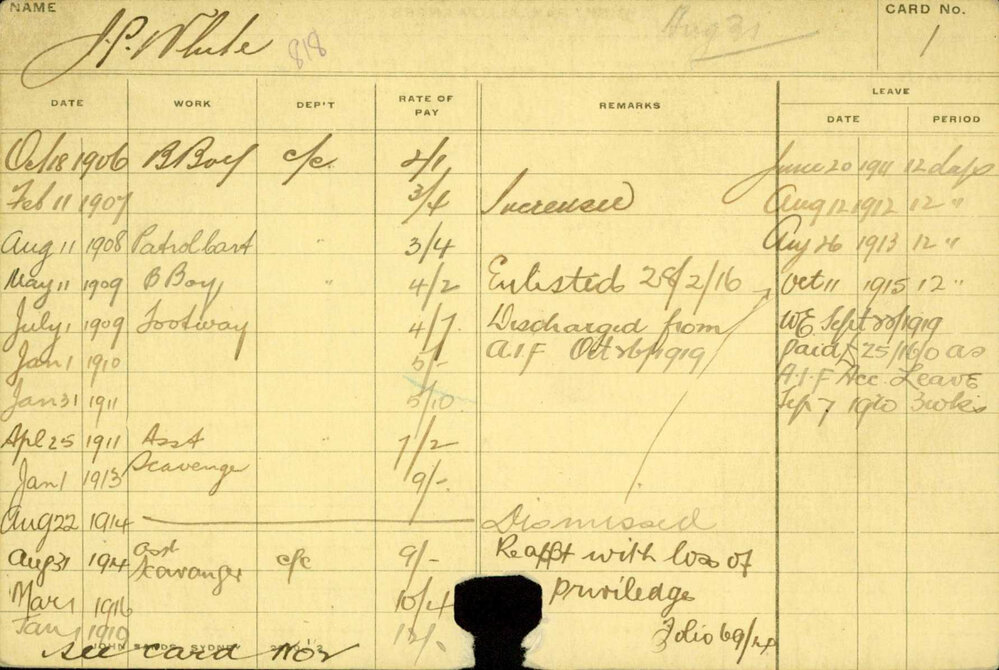 NAME J.P. White 818 Aug 31 CARD No. 1
DATE WORK DEP'T RATE OF PAY REMARKS LEAVE
DATE PERIOD
Oct 18 1906 B Boy c/c. 2/1 June 20 1911 12 days
Feb 11 1907 3/4 Increased Aug 12 1912 12 "
Aug 11 1908 Patrol cart " 3/4 Aug 26 1913 12 "
May 11 1909 B Boy " 4/2 Enlisted 28/2/16 Oct 11 1915 12 "
July 1 1909 Footway 4/7 Discharged from WE Sept 1919
Jan 1 1910 5/- A.I.F Oct 1919 paid £25/16/0 as
A.I.F Acc. Leave
Jan 31 1911 5/10 Sep 7 1920 3 wks
Apl 25 1911 Asst " 7/2
Scavenger
Jan 1 1913 9/-
Aug 22 1914 Dismissed
Aug 31 1914 Asst Scavanger c/c 9/- Reappt with loss of
Mar 1 1916 10/4 priviledge
Jan 1 1919 12/- Folio 69/14
JOHN SANDS, SYDNEY
see card No 2